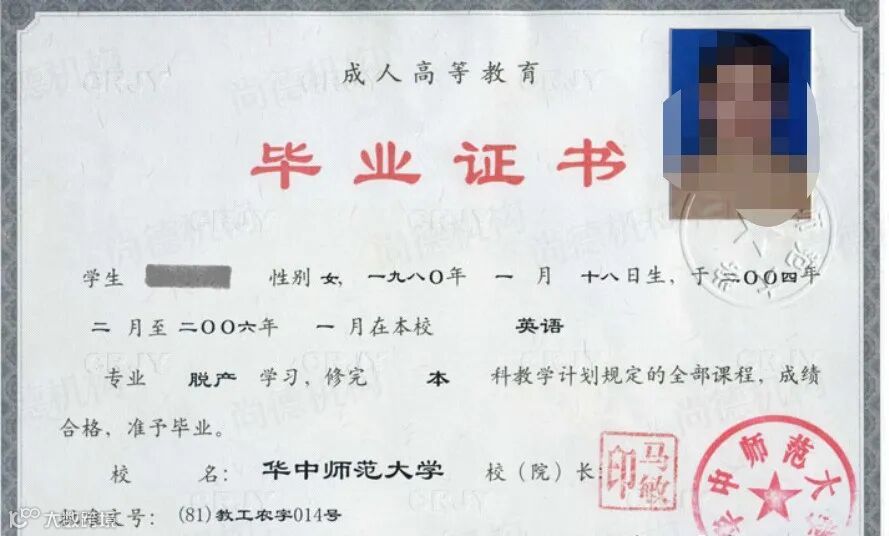 成人高等教育
毕业证书
学生 性别 女，一九八〇年 一 月 十八日生，于 二〇〇四年
二 月至 二〇〇六年 一 月在本校 英语
专业 脱产 学习，修完 本 科教学计划规定的全部课程，成绩
合格，准予毕业。
校 名：华中师范大学 校（院）长：
马敏印
中师范大
批准文号：(81)教工农字014号
尚德机构
GRJY
大数跨境